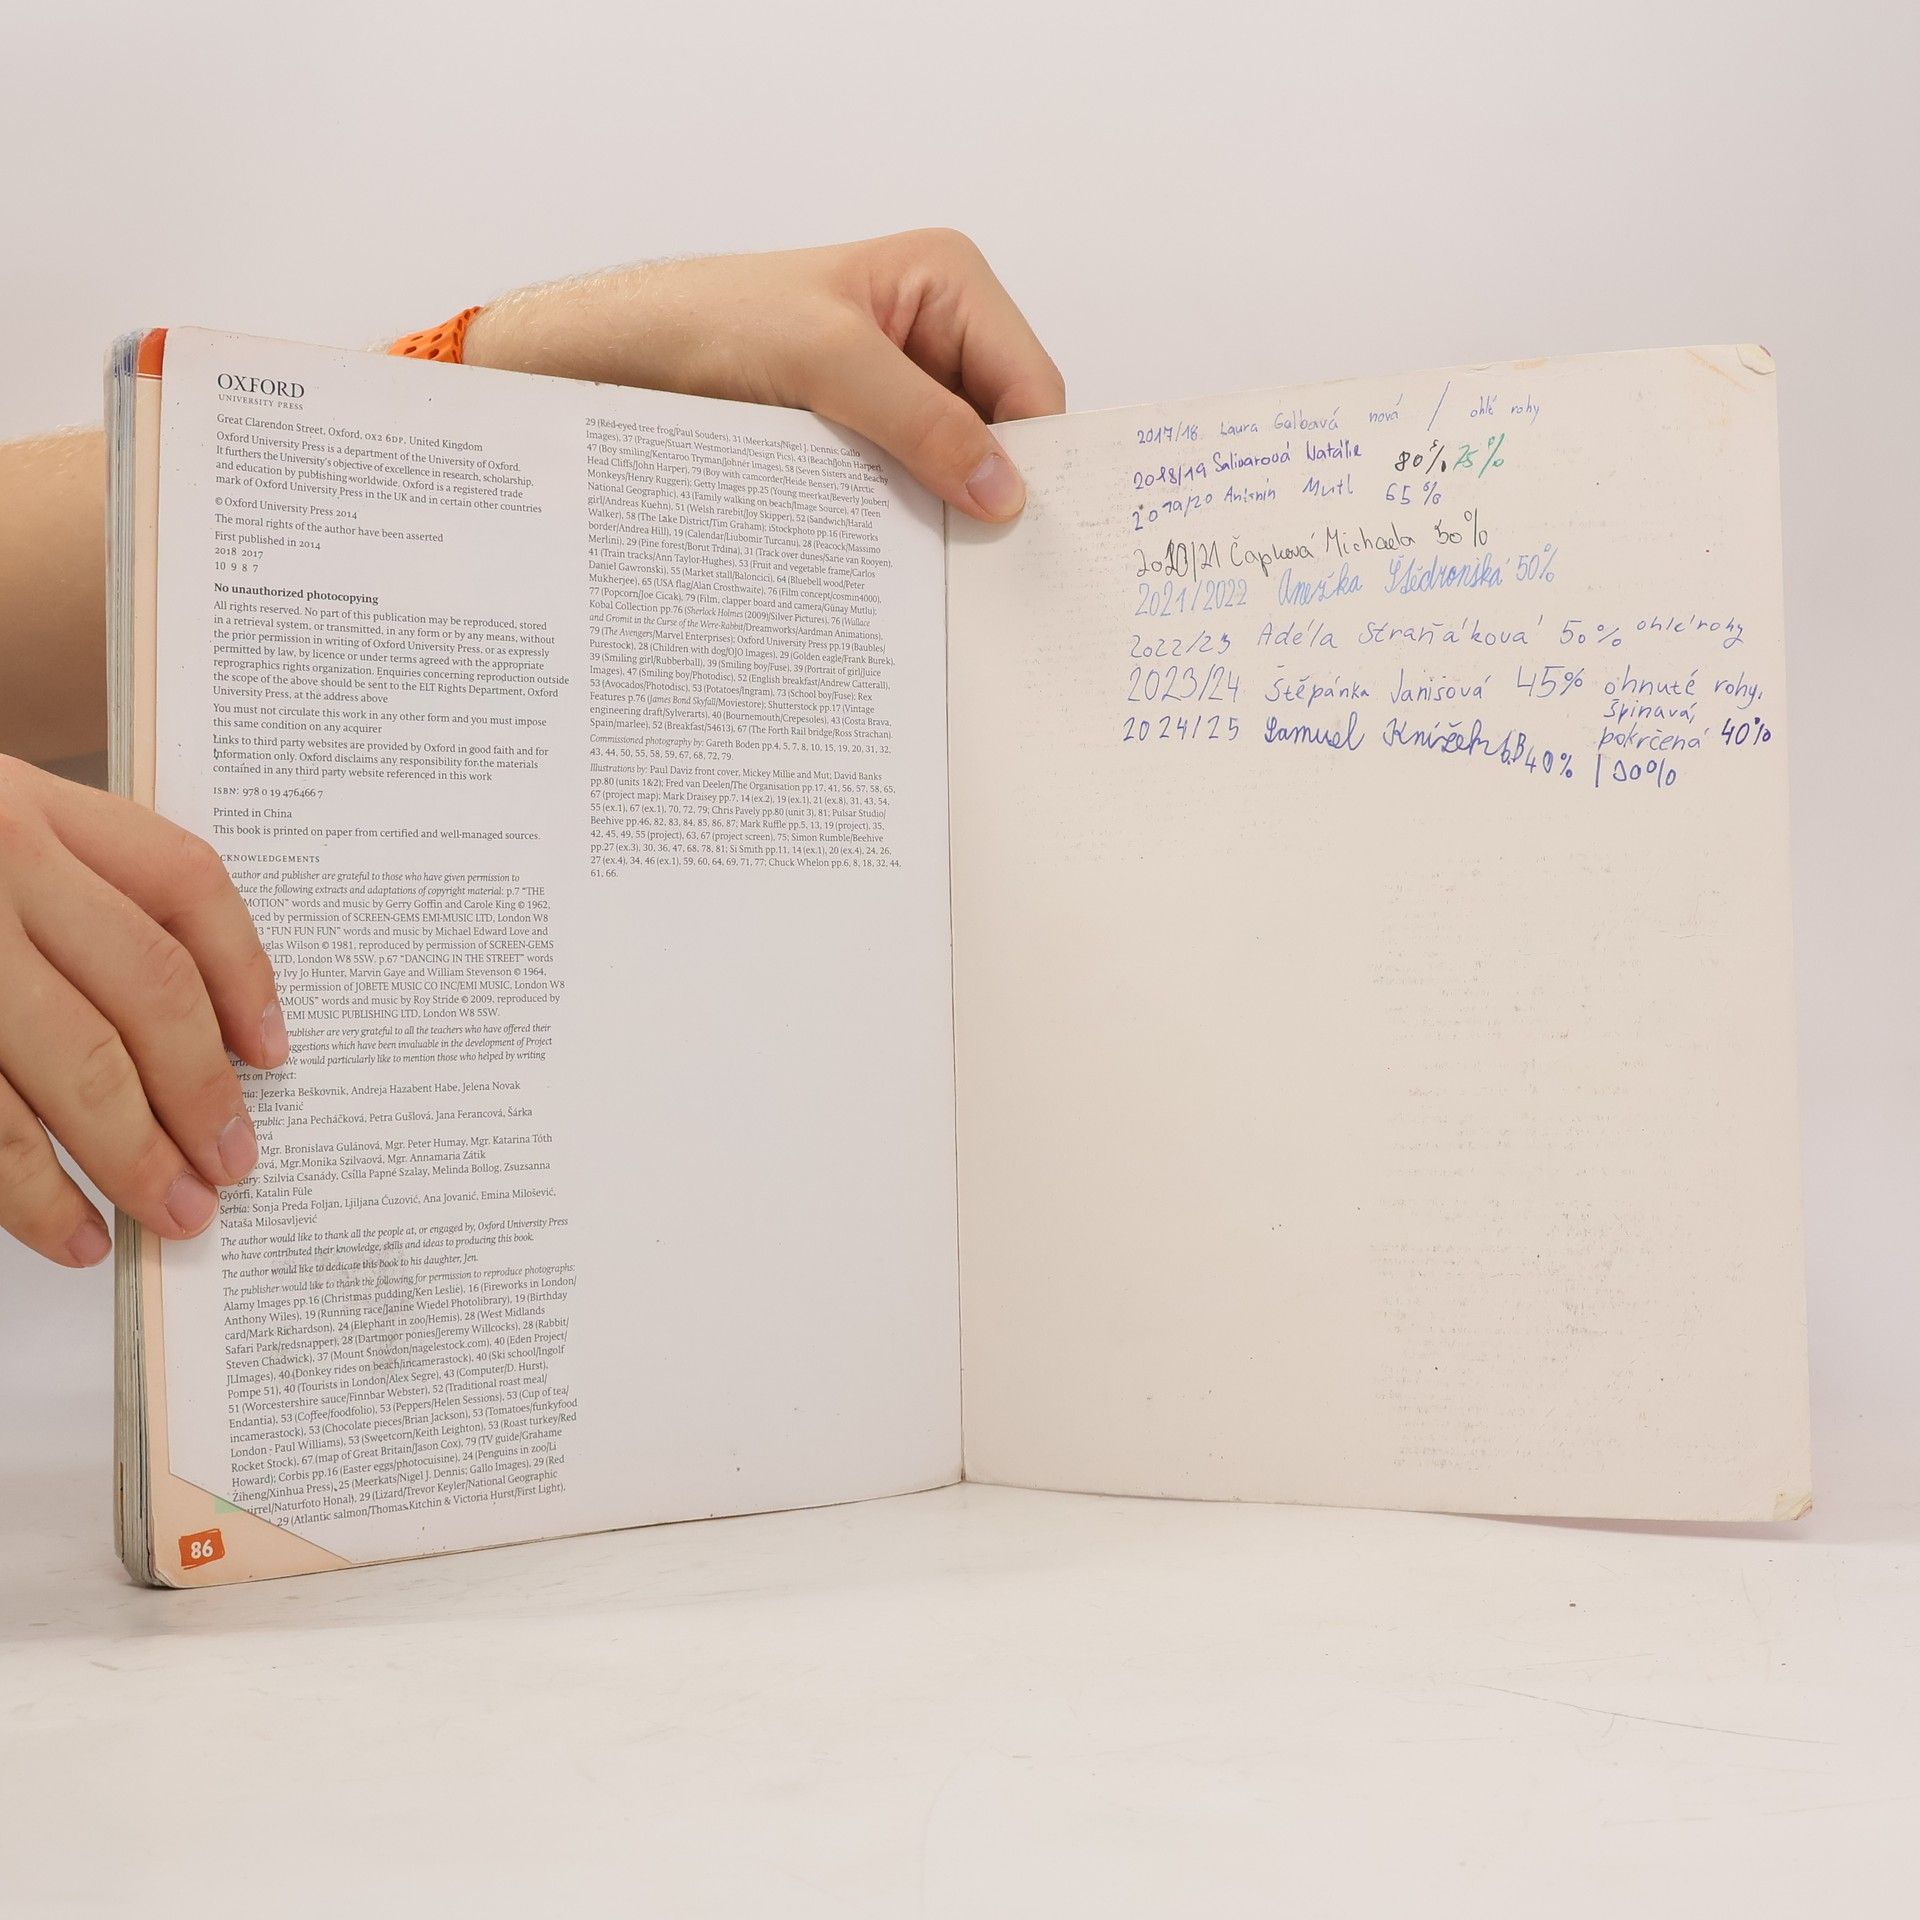 OXFORD
UNIVERSITY PRESS
Great Clarendon Street, Oxford, OX2 6DP, United Kingdom
Oxford University Press is a department of the University of Oxford.
It furthers the University's objective of excellence in research, scholarship,
and education by publishing worldwide. Oxford is a registered trade
mark of Oxford University Press in the UK and in certain other countries
© Oxford University Press 2014
The moral rights of the author have been asserted
First published in 2014
2018 2017
10 9 8 7
No unauthorized photocopying
All rights reserved. No part of this publication may be reproduced, stored
in a retrieval system, or transmitted, in any form or by any means, without
the prior permission in writing of Oxford University Press, or as expressly
permitted by law, by licence or under terms agreed with the appropriate
reprographics rights organization. Enquiries concerning reproduction outside
the scope of the above should be sent to the ELT Rights Department, Oxford
University Press, at the address above
You must not circulate this work in any other form and you must impose
this same condition on any acquirer
Links to third party websites are provided by Oxford in good faith and for
information only. Oxford disclaims any responsibility for the materials
contained in any third party website referenced in this work
ISBN: 978 0 19 476466 7
Printed in China
This book is printed on paper from certified and well-managed sources.
CKNOWLEDGEMENTS
author and publisher are grateful to those who have given permission to
duce the following extracts and adaptations of copyright material: p.7 “THE
MOTION” words and music by Gerry Goffin and Carole King © 1962,
uced by permission of SCREEN-GEMS EMI-MUSIC LTD, London W8
13 “FUN FUN FUN” words and music by Michael Edward Love and
uglas Wilson © 1981, reproduced by permission of SCREEN-GEMS
LTD, London W8 5SW. p.67 “DANCING IN THE STREET” words
y Ivy Jo Hunter, Marvin Gaye and William Stevenson © 1964,
by permission of JOBETE MUSIC CO INC/EMI MUSIC, London W8
AMOUS” words and music by Roy Stride © 2009, reproduced by
EMI MUSIC PUBLISHING LTD, London W8 5SW.
publisher are very grateful to all the teachers who have offered their
ggestions which have been invaluable in the development of Project
We would particularly like to mention those who helped by writing
rts on Project:
nia: Jezerka Beškovnik, Andreja Hazabent Habe, Jelena Novak
a: Ela Ivanić
epublic: Jana Pecháčková, Petra Gušlová, Jana Ferancová, Šárka
ová
Mgr. Bronislava Gulánová, Mgr. Peter Humay, Mgr. Katarina Tóth
lová, Mgr.Monika Szilvaová, Mgr. Annamaria Zátik
gary: Szilvia Csanády, Csilla Papné Szalay, Melinda Bollog, Zsuzsanna
Győrfi, Katalin Füle
Serbia: Sonja Preda Foljan, Ljiljana Ćuzović, Ana Jovanić, Emina Milošević,
Nataša Milosavljević
The author would like to thank all the people at, or engaged by, Oxford University Press
who have contributed their knowledge, skills and ideas to producing this book.
The author would like to dedicate this book to his daughter, Jen.
The publisher would like to thank the following for permission to reproduce photographs:
Alamy Images pp.16 (Christmas pudding/Ken Leslie), 16 (Fireworks in London/
Anthony Wiles), 19 (Running race/Janine Wiedel Photolibrary), 19 (Birthday
card/Mark Richardson), 24 (Elephant in zoo/Hemis), 28 (West Midlands
Safari Park/redsnapper), 28 (Dartmoor ponies/Jeremy Willcocks), 28 (Rabbit/
Steven Chadwick), 37 (Mount Snowdon/nagelestock.com), 40 (Eden Project/
JLImages), 40 (Donkey rides on beach/incamerastock), 40 (Ski school/Ingolf
Pompe 51), 40 (Tourists in London/Alex Segre), 43 (Computer/D. Hurst),
51 (Worcestershire sauce/Finnbar Webster), 52 (Traditional roast meal/
Endantia), 53 (Coffee/foodfolio), 53 (Peppers/Helen Sessions), 53 (Cup of tea/
incamerastock), 53 (Chocolate pieces/Brian Jackson), 53 (Tomatoes/funkyfood
London - Paul Williams), 53 (Sweetcorn/Keith Leighton), 53 (Roast turkey/Red
Rocket Stock), 67 (map of Great Britain/Jason Cox), 79 (TV guide/Grahame
Howard); Corbis pp.16 (Easter eggs/photocuisine), 24 (Penguins in zoo/Li
Ziheng/Xinhua Press), 25 (Meerkats/Nigel J. Dennis; Gallo Images), 29 (Red
uirrel/Naturfoto Honal), 29 (Lizard/Trevor Keyler/National Geographic
29 (Atlantic salmon/Thomas Kitchin & Victoria Hurst/First Light),
86
29 (Red-eyed tree frog/Paul Souders), 31 (Meerkats/Nigel J. Dennis; Gallo
Images), 37 (Prague/Stuart Westmorland/Design Pics), 43 (Beach/John Harper),
47 (Boy smiling/Kentaroo Tryman/Johnér Images), 58 (Seven Sisters and Beachy
Head Cliffs/John Harper), 79 (Boy with camcorder/Heide Benser), 79 (Arctic
Monkeys/Henry Ruggeri); Getty Images pp.25 (Young meerkat/Beverly Joubert/
National Geographic), 43 (Family walking on beach/Image Source), 47 (Teen
girl/Andreas Kuehn), 51 (Welsh rarebit/Joy Skipper), 52 (Sandwich/Harald
Walker), 58 (The Lake District/Tim Graham); iStockphoto pp.16 (Fireworks
border/Andrea Hill), 19 (Calendar/Liubomir Turcanu), 28 (Peacock/Massimo
Merlini), 29 (Pine forest/Borut Trdina), 31 (Track over dunes/Sarie van Rooyen),
41 (Train tracks/Ann Taylor-Hughes), 53 (Fruit and vegetable frame/Carlos
Daniel Gawronski), 55 (Market stall/Baloncici), 64 (Bluebell wood/Peter
Mukherjee), 65 (USA flag/Alan Crosthwaite), 76 (Film concept/cosmin4000),
77 (Popcorn/Joe Cicak), 79 (Film, clapper board and camera/Günay Mutlu);
Kobal Collection pp.76 (Sherlock Holmes (2009)/Silver Pictures), 76 (Wallace
and Gromit in the Curse of the Were-Rabbit/Dreamworks/Aardman Animations),
79 (The Avengers/Marvel Enterprises); Oxford University Press pp.19 (Baubles/
Purestock), 28 (Children with dog/OJO Images), 29 (Golden eagle/Frank Burek),
39 (Smiling girl/Rubberball), 39 (Smiling boy/Fuse), 39 (Portrait of girl/Juice
Images), 47 (Smiling boy/Photodisc), 52 (English breakfast/Andrew Catterall),
53 (Avocados/Photodisc), 53 (Potatoes/Ingram), 73 (School boy/Fuse); Rex
Features p.76 (James Bond Skyfall/Moviestore); Shutterstock pp.17 (Vintage
engineering draft/Sylverarts), 40 (Bournemouth/Crepesoles), 43 (Costa Brava,
Spain/marlee), 52 (Breakfast/54613), 67 (The Forth Rail bridge/Ross Strachan).
Commissioned photography by: Gareth Boden pp.4, 5, 7, 8, 10, 15, 19, 20, 31, 32,
43, 44, 50, 55, 58, 59, 67, 68, 72, 79.
Illustrations by: Paul Daviz front cover, Mickey Millie and Mut; David Banks
pp.80 (units 1&2); Fred van Deelen/The Organisation pp.17, 41, 56, 57, 58, 65,
67 (project map); Mark Draisey pp.7, 14 (ex.2), 19 (ex.1), 21 (ex.8), 31, 43, 54,
55 (ex.1), 67 (ex.1), 70, 72, 79; Chris Pavely pp.80 (unit 3), 81; Pulsar Studio/
Beehive pp.46, 82, 83, 84, 85, 86, 87; Mark Ruffle pp.5, 13, 19 (project), 35,
42, 45, 49, 55 (project), 63, 67 (project screen), 75; Simon Rumble/Beehive
pp.27 (ex.3), 30, 36, 47, 68, 78, 81; Si Smith pp.11, 14 (ex.1), 20 (ex.4), 24, 26,
27 (ex.4), 34, 46 (ex.1), 59, 60, 64, 69, 71, 77; Chuck Whelon pp.6, 8, 18, 32, 44,
61, 66.
2017/18 Laura Galbavá nová / ohlé rohy
2018/19 Salivarová Natálie 80% 75%
2019/20 65%
2020/21 Čapková Michaela 50%
2021/2022 Anežka Štědronská 50%
2022/23 Adéla Straňáková 50% ohlé rohy
2023/24 Štěpánka Janišová 45% ohnuté rohy,
špinavá,
pokrčená 40%
2024/25 Samuel 6.B 40% | 00%